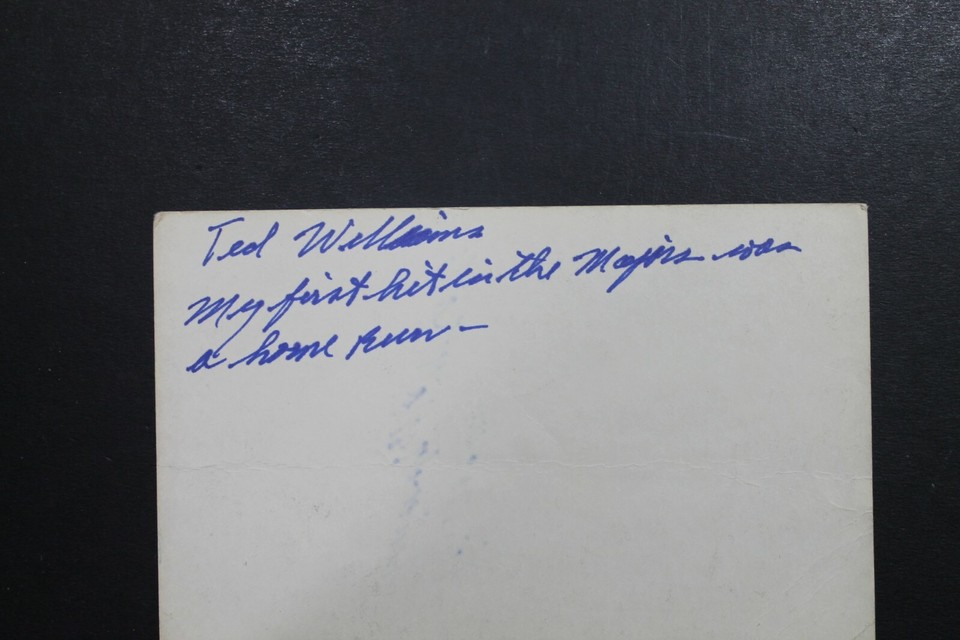 Ted Williams
My first hit in the Majors was
a home run -